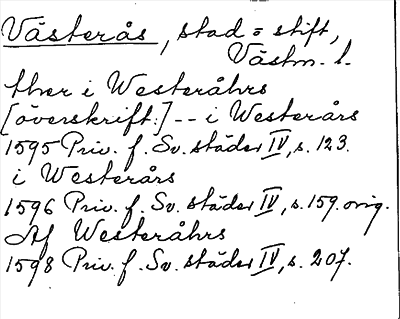 Västerås, stad o stift,
Västm. l.
ther i Westeråhrs
[överskrift:] -- i Westerårs
1595 Priv. f. Sv. städer IV, s. 123.
i Westerårs
1596 Priv. f. Sv. städer IV, s. 159. orig.
Af Westeråhrs
1598 Priv. f. Sv. städer IV, s. 207.